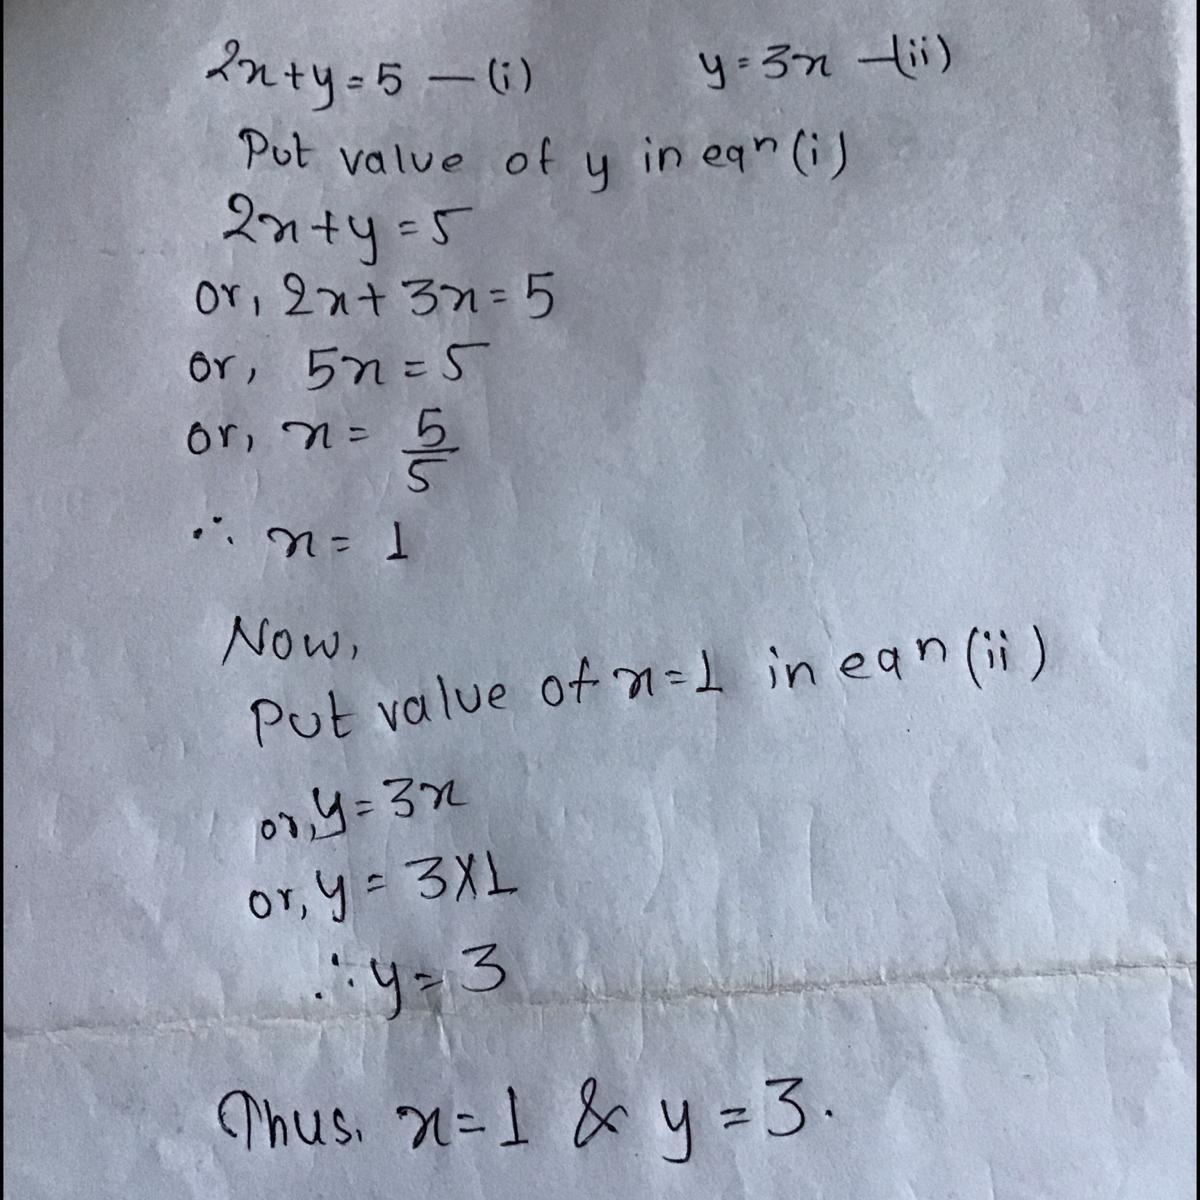 2x+y=5 — (i) y=3x —(ii)
Put value of y in eqn (i)
2x+y=5
or, 2x+3x=5
or, 5x=5
or, x= 5/5
∴ x= 1
Now,
Put value of x=1 in eqn (ii)
or, y=3x
or, y= 3X1
∴ y=3
Thus, x=1 & y=3.